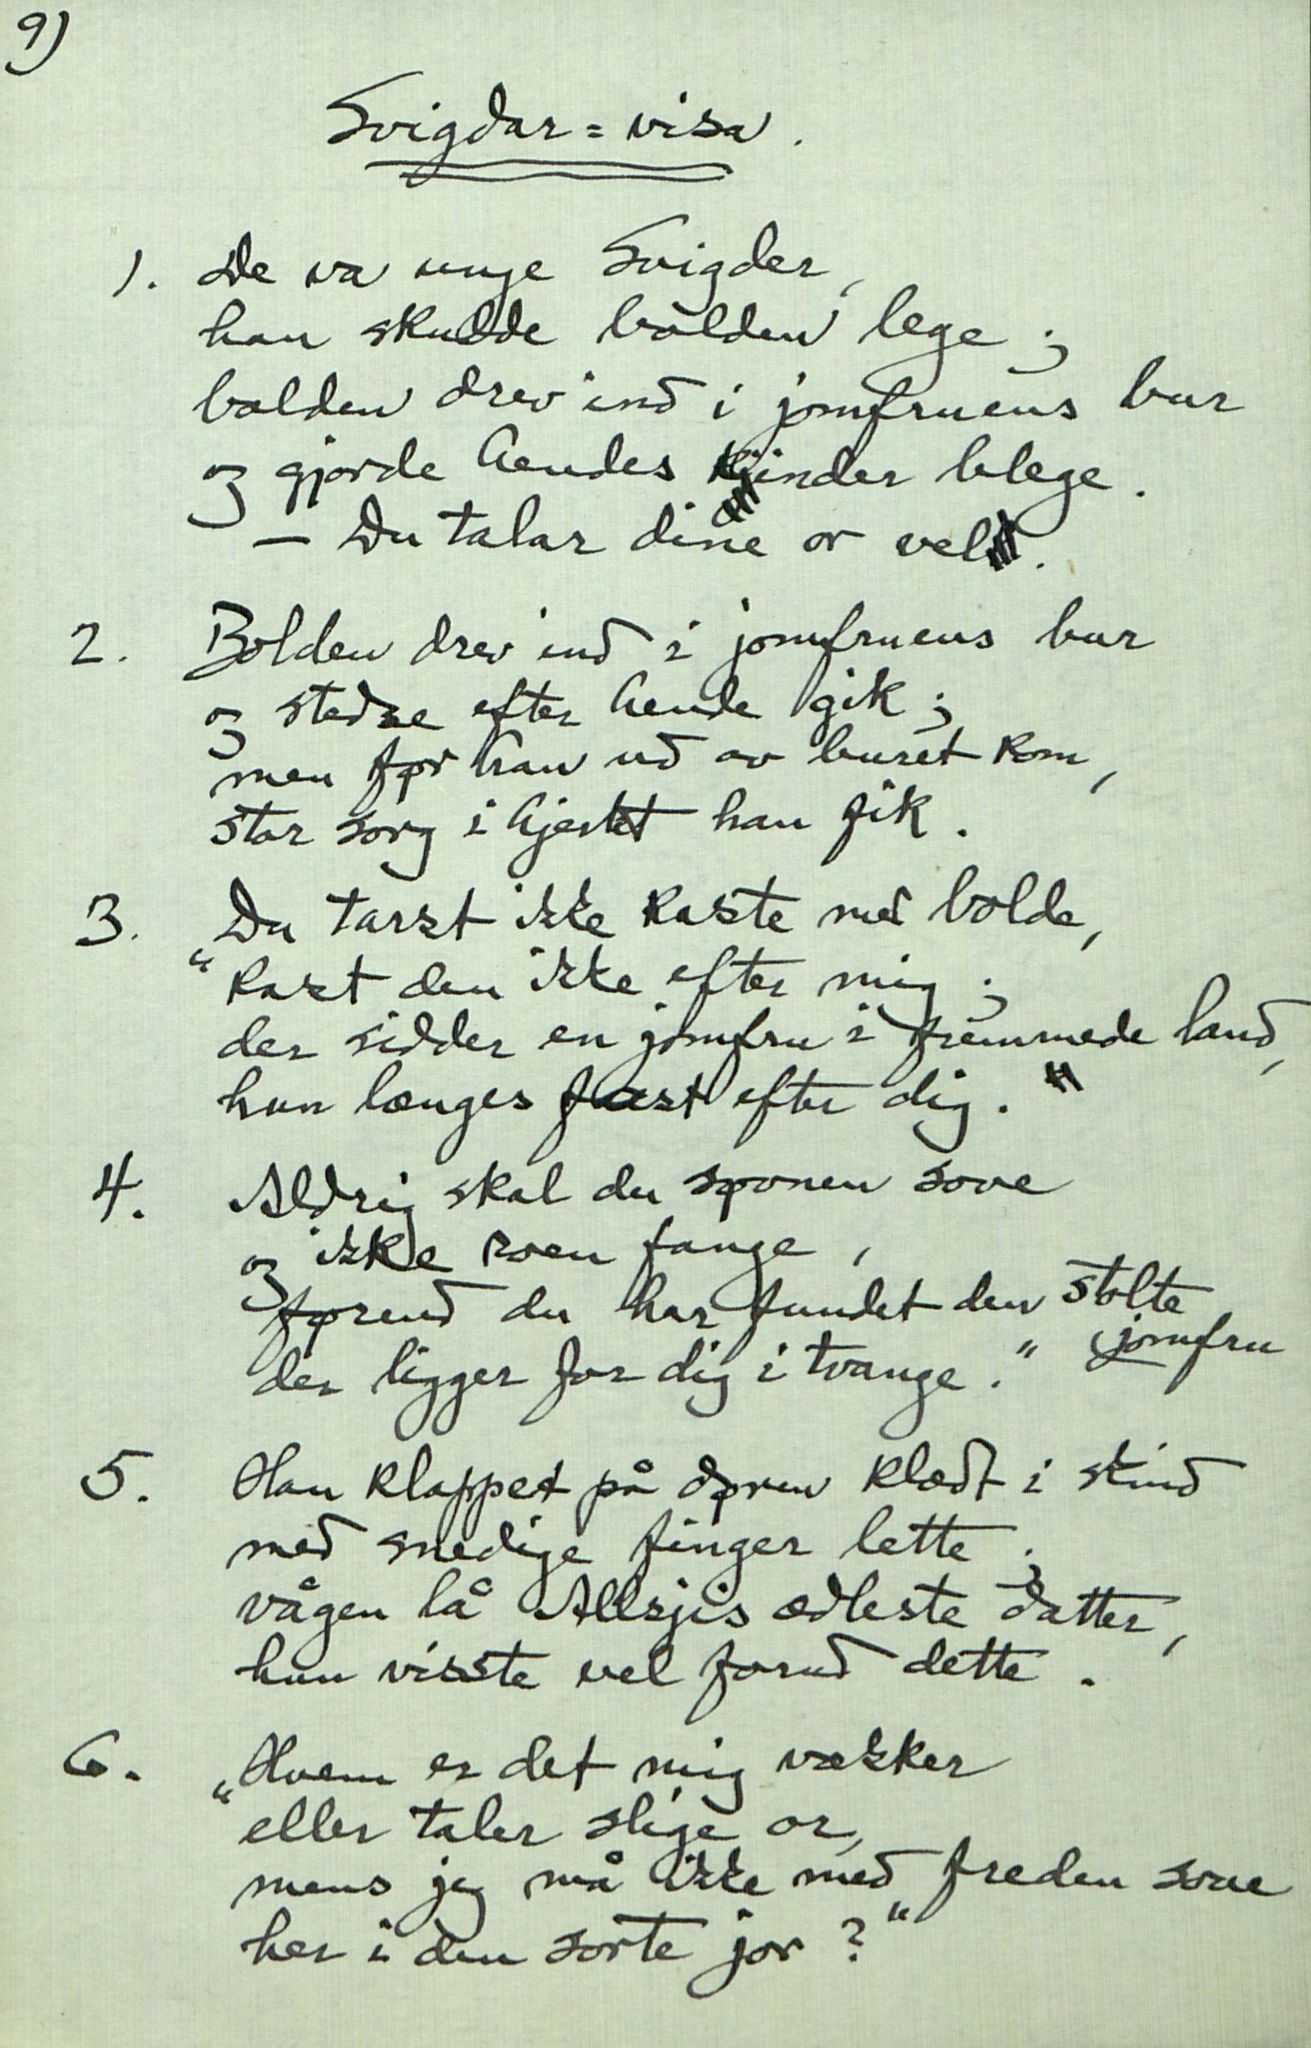 9)
Svigdar = visa.
1. De va unge Svigder,
han skulde bolden lege;
bolden drev ind i jomfruens bur
og gjorde hendes kinder blege.
— Du talar dine or vel.
2. Bolden drev ind i jomfruens bur
og stedse efter hende gik;
men før han ud av buret kom,
stor sorg i hjertet han fik.
3. "Du tarst ikke kaste med bolde,
kast den ikke efter mig;
der sidder en jomfru i fremmede land,
hun længes fast efter dig."
4. Aldrig skal du sønen sove
og ikke roen fange,
førend du har fundet den stolte jomfru
der ligger for dig i tvange."
5. Han klappet på døren klædt i skind
med snedige finger lette;
vågen lå Allsjis ædleste datter,
hun visste vel forud dette.
6. "Hvem er det mig vækker
eller taler slige or,
mens jeg må ikke med freden sove
her i den sorte jor?"